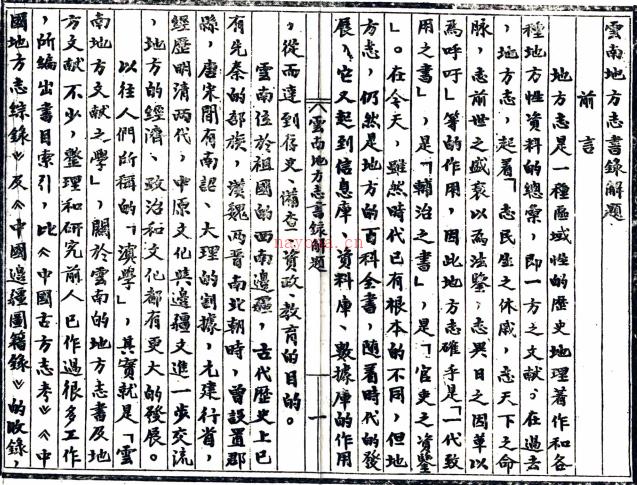 雲南地方志書錄解題
前言
地方志是一種區域性的歷史地理著作和各
種地方性資料的總滙，即一方之文献。在過去
，地方志，起着「志民生之休戚，志天下之命
脉，志前世之盛衰以爲法鑒，志異日之因革以
爲呼吁」等的作用，因此地方志確乎是「一代致
用之書」，是「輔治之書」，是「官吏之資鑒
」。在今天，雖然時代已有根本的不同，但地
方志，仍然是地方的百科全書，隨着時代的發
展，它又起到信息庫、資料庫、數據庫的作用
《雲南地方志書錄解題
一
，從而達到存史、備查、資政、教育的目的。
雲南位於祖國的西南邊疆，古代歷史上已
有先秦的部族，漢魏兩晋南北朝時，曾設置郡
縣，唐宋間有南詔、大理的割據，元建行省，
經歷明清兩代，中原文化與邊疆文進一步交流
，地方的經濟、政治和文化都有更大的發展。
以往人們所稱的「滇學」，其實就是「雲
南地方文献之學」，關於雲南的地方志書及地
方文献不少，整理和研究前人已作過很多工作
，所編出書目索引，比《中國古方志考》《中
國地方志綜錄》及《中國邊疆圖籍錄》的收錄，
nayona.cn